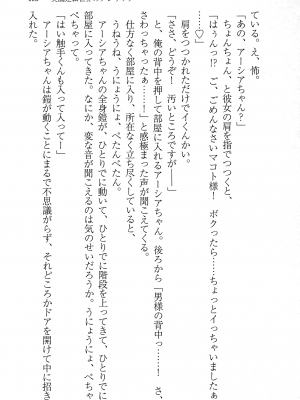 ている。え、怖。
「あの、アーシアちゃん？」
ちょんちょん、と彼女の肩を指でつつくと、
「はぅんっ!?　ご、ごめんなさいマコト様！　ボクったら……ちょっとイっちゃいましたぁ
……♡」
肩をつつかれただけでイくんかい。
「ささ、どうぞ！　汚いところですが――」
と、俺の背中を押して部屋に入れるアーシアちゃん。後ろから「男様の背中っ……！　さ、
さわっちゃったぁ……！」と感極まった声が聞こえてくる。
仕方なく部屋に入り、所在なく立ち尽くしていると、
うねうね、うにょうにょ、ぺたんぺたん。
アーシアちゃんの全身鎧が、ひとりでに動いて、ひとりでに階段を上ってきて、ひとりでに
部屋に入ってきた。なにか、変な音が聞こえるのは気のせいだろうか。うにょうにょ、ぺちゃ
「はい触手くんも入って入ってー」
アーシアちゃんは鎧が動くことにまるで不思議がらず、それどころかドアを開けて中に招き
入れた。